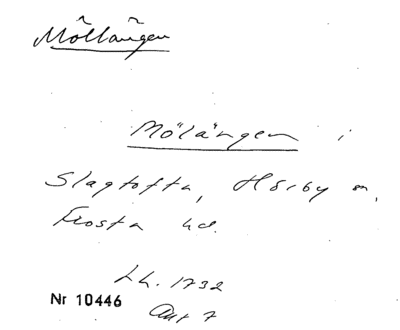 Möllängen
Mölängen i
Slagtofta, Hörby sn,
Frosta hd.
LL. 1732
Akt 7
Nr 10446